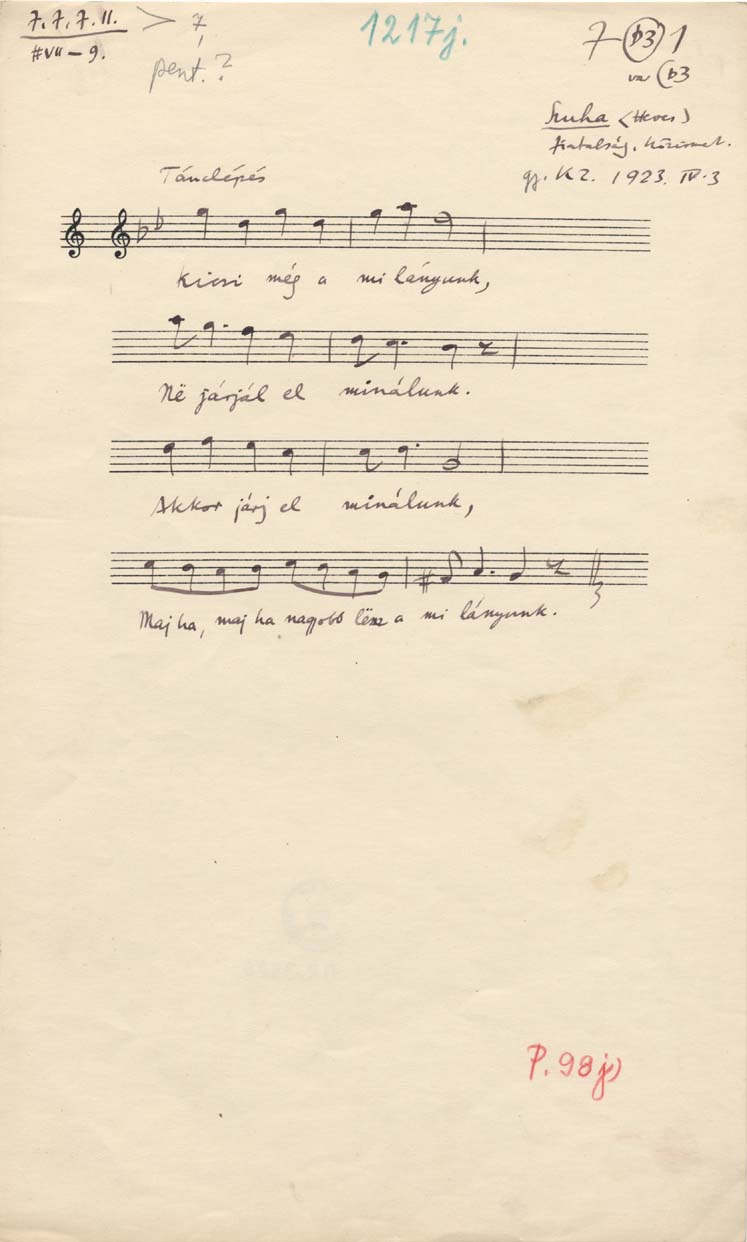 7. 7. 7. 11. > 7
#VII – 9.
pent. ?
1217j.
7 (b3) 1
var (b3
Szuha (Heves)
Fiatalság.
gy. K Z. 1923. IV. 3
Tánclépés
Kicsi még a mi lányunk,
Në járjál el minálunk.
Akkor járj el minálunk,
Maj ha, maj ha nagyobb lësz a mi lányunk.
P. 98j)